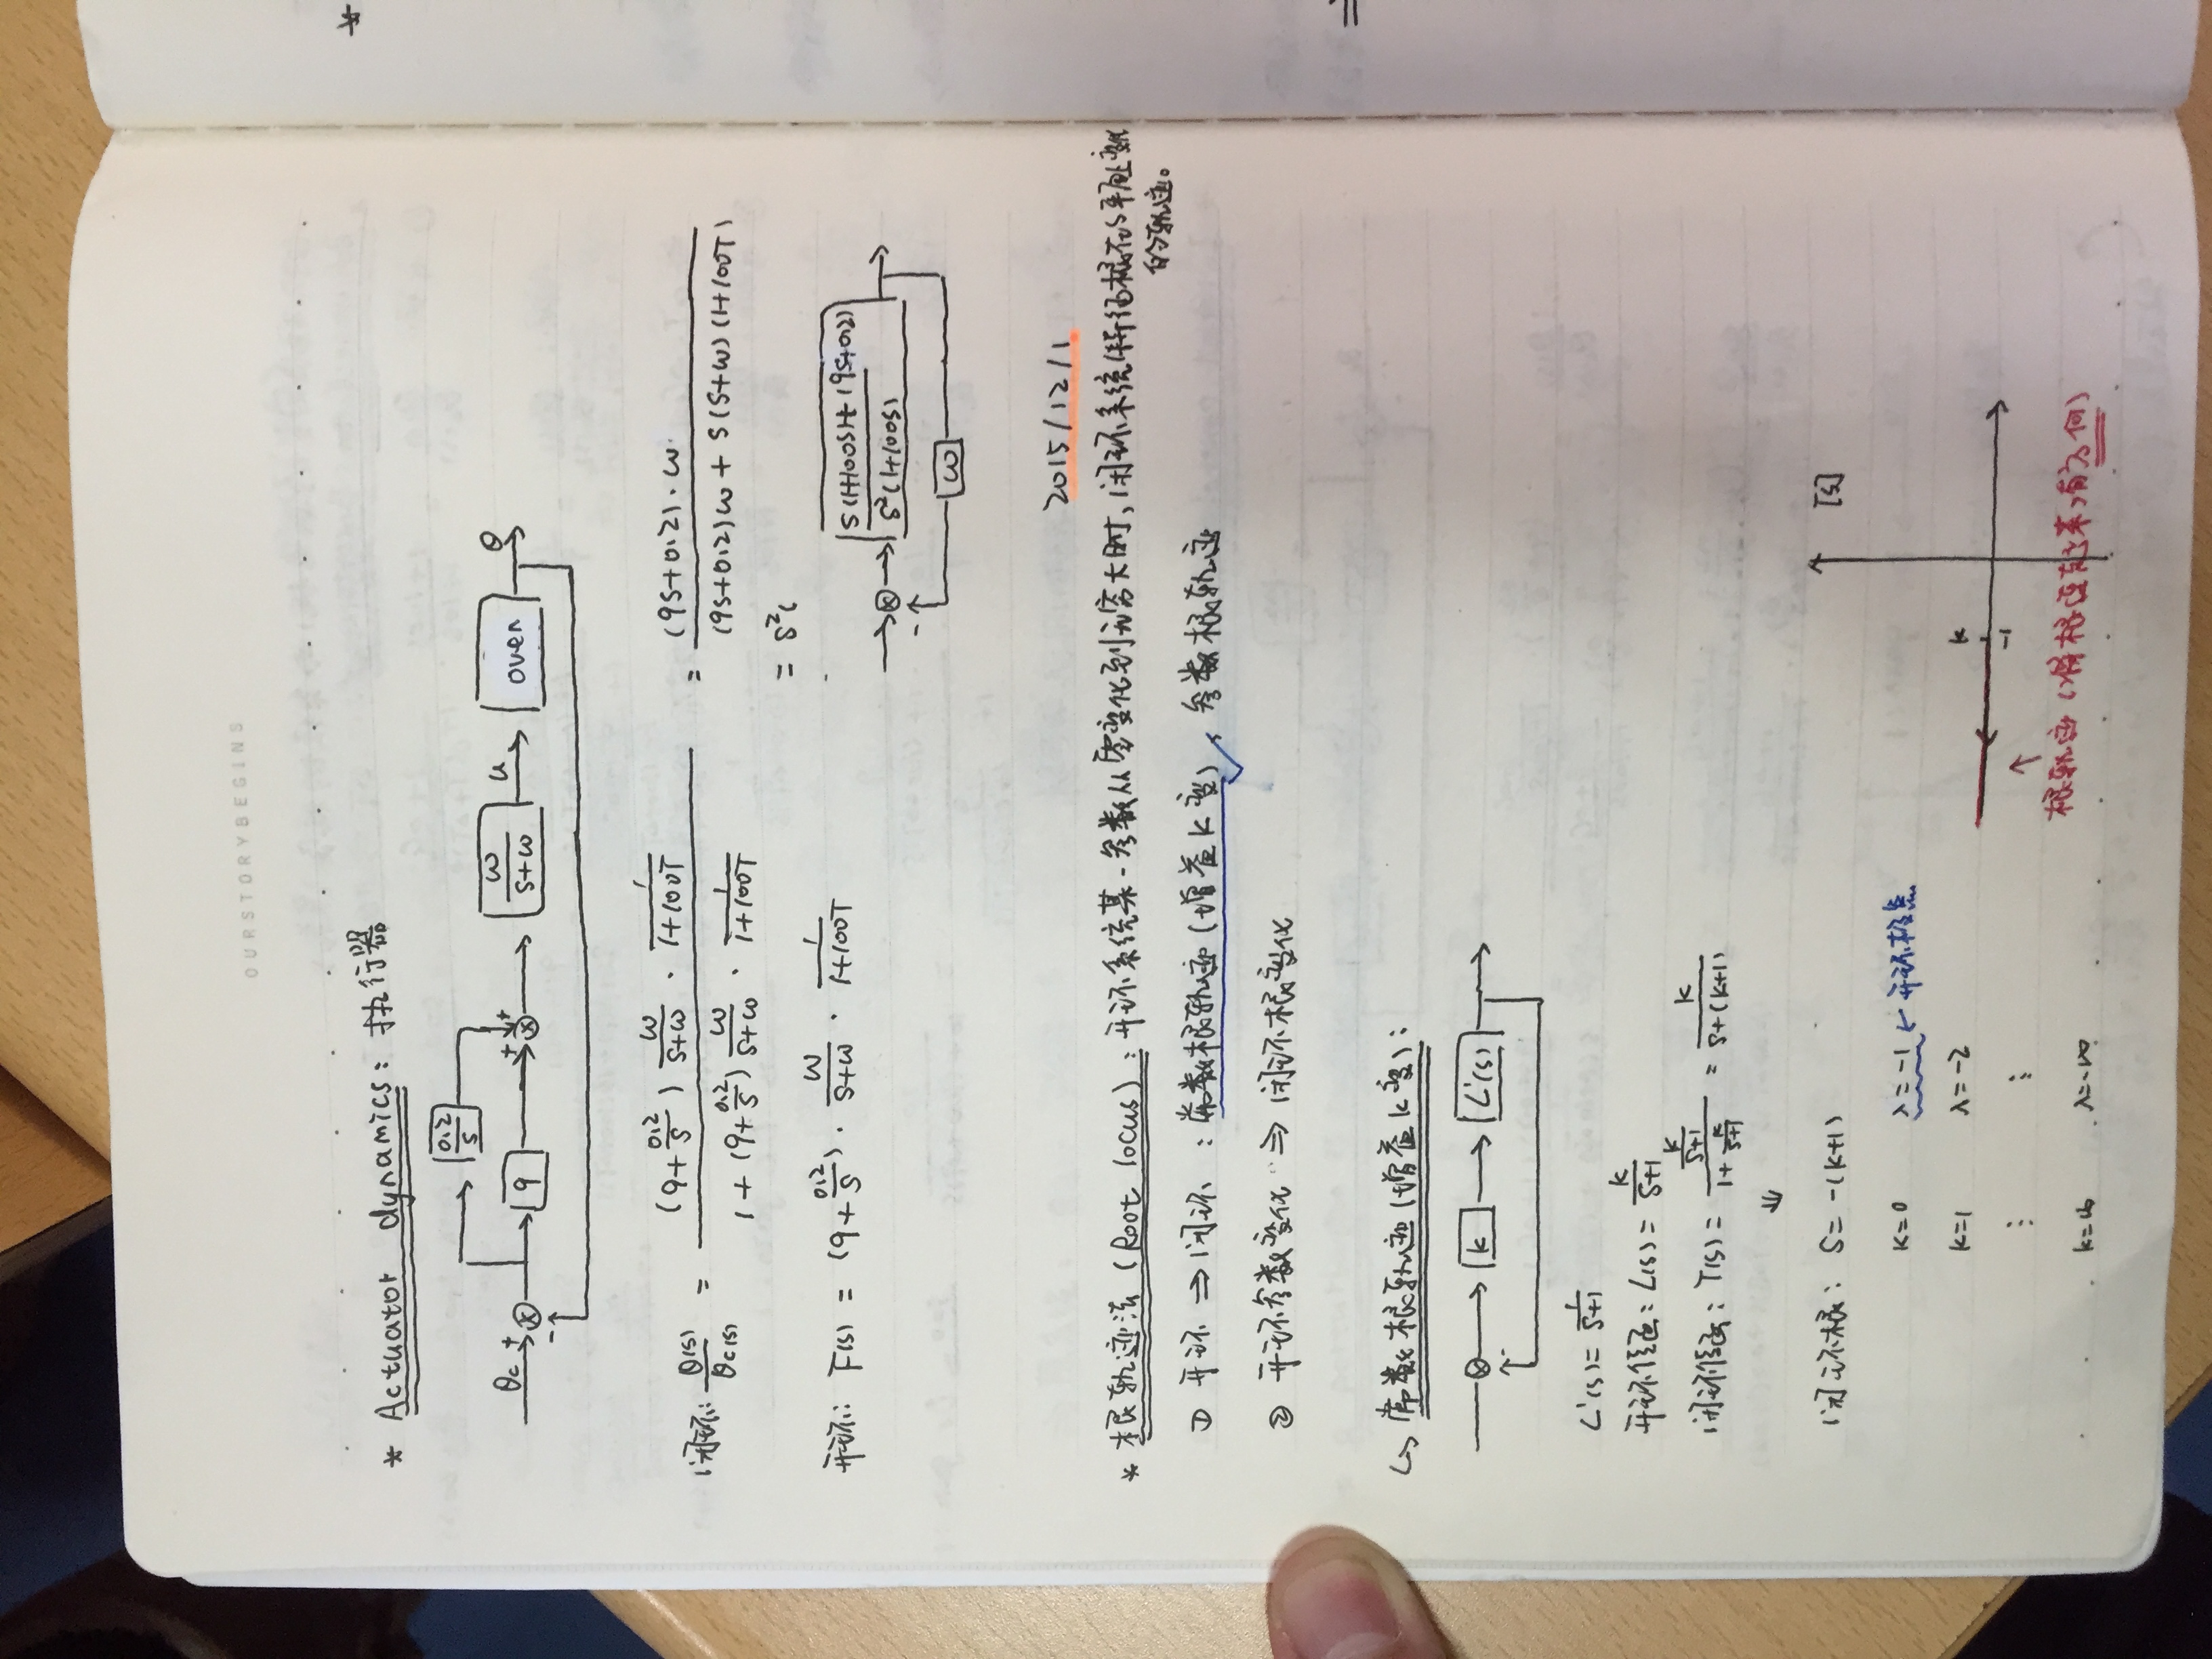 OURSTORYBEGINS
* Actuator dynamics: 执行器
0.2/s
θc + - 9 + + ω/(s+ω) u oven θ
闭环: θ(s)/θc(s) = (9+0.2/s) ω/(s+ω) · 1/(1+100T) / (1+(9+0.2/s) ω/(s+ω) · 1/(1+100T)) = (9s+0.2)·ω / ((9s+0.2)ω + s(s+ω)(1+100T))
= s²(
开环: F(s) = (9+0.2/s) · ω/(s+ω) · 1/(1+100T)
- (s(1+100s)+(9s+0.2)) / (s²(1+100s))
ω
2015/12/1
* 根轨迹法 (Root locus): 开环系统某一参数从零变化到无穷大时, 闭环系统特征根在s平面上变化
的轨迹。
① 开环 ⇒ 闭环 : 常数根轨迹 (增益K变) ✓、参数根轨迹
② 开环参数变化 ⇒ 闭环根变化
↳ 常数根轨迹 (增益K变):
- k L'(s)
L'(s) = 1/(s+1)
开环传函: L(s) = k/(s+1)
闭环传函: T(s) = (k/(s+1)) / (1+k/(s+1)) = k/(s+(k+1))
⇓
闭环根: s = -(k+1)
[s]
k=0 λ=-1 ← 开环极点
k=1 λ=-2
k
-1
⋮ ⋮
根轨迹 (将根连起来,有方向)
k=∞ λ=-∞
*
=